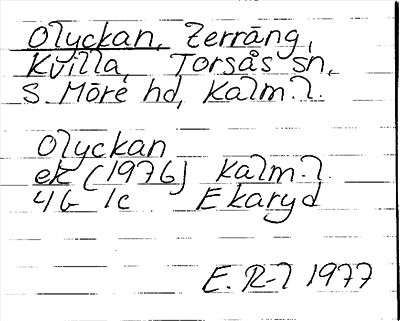 Olyckan, Zerräng,
Kvilla, Torsås sn,
S. Möre hd, Kalm. l.
Olyckan
ek (1976) Kalm. l.
4G 1c Ekaryd
E. R-l 1977